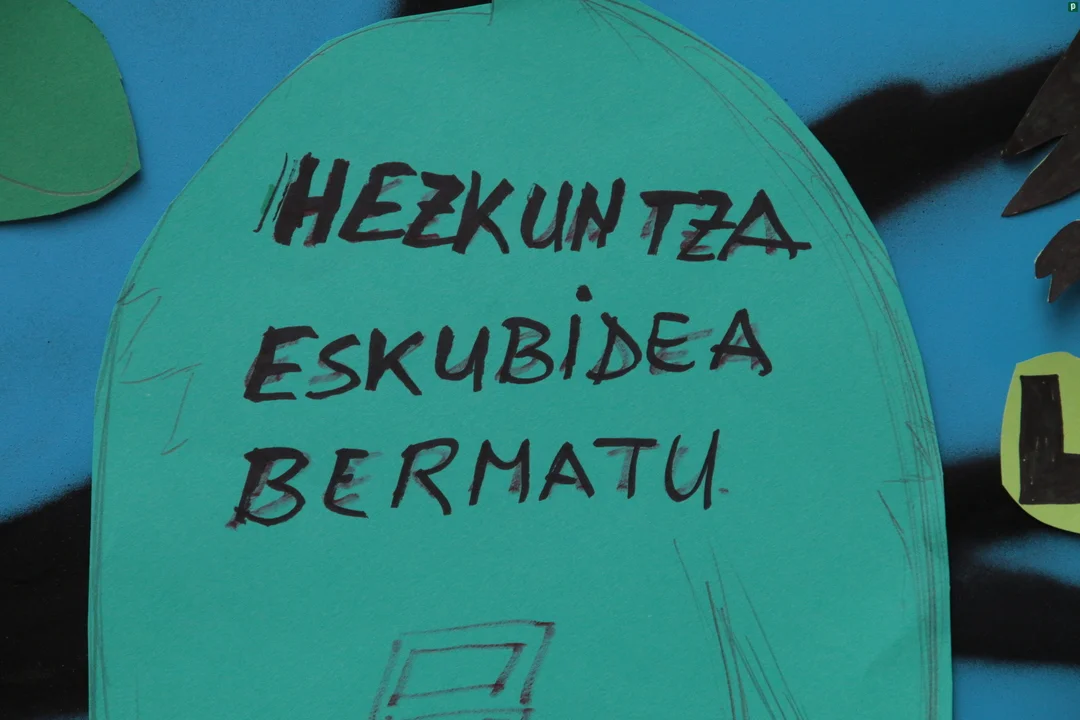 HEZKUNTZA
ESKUBIDEA
BERMATU.
L